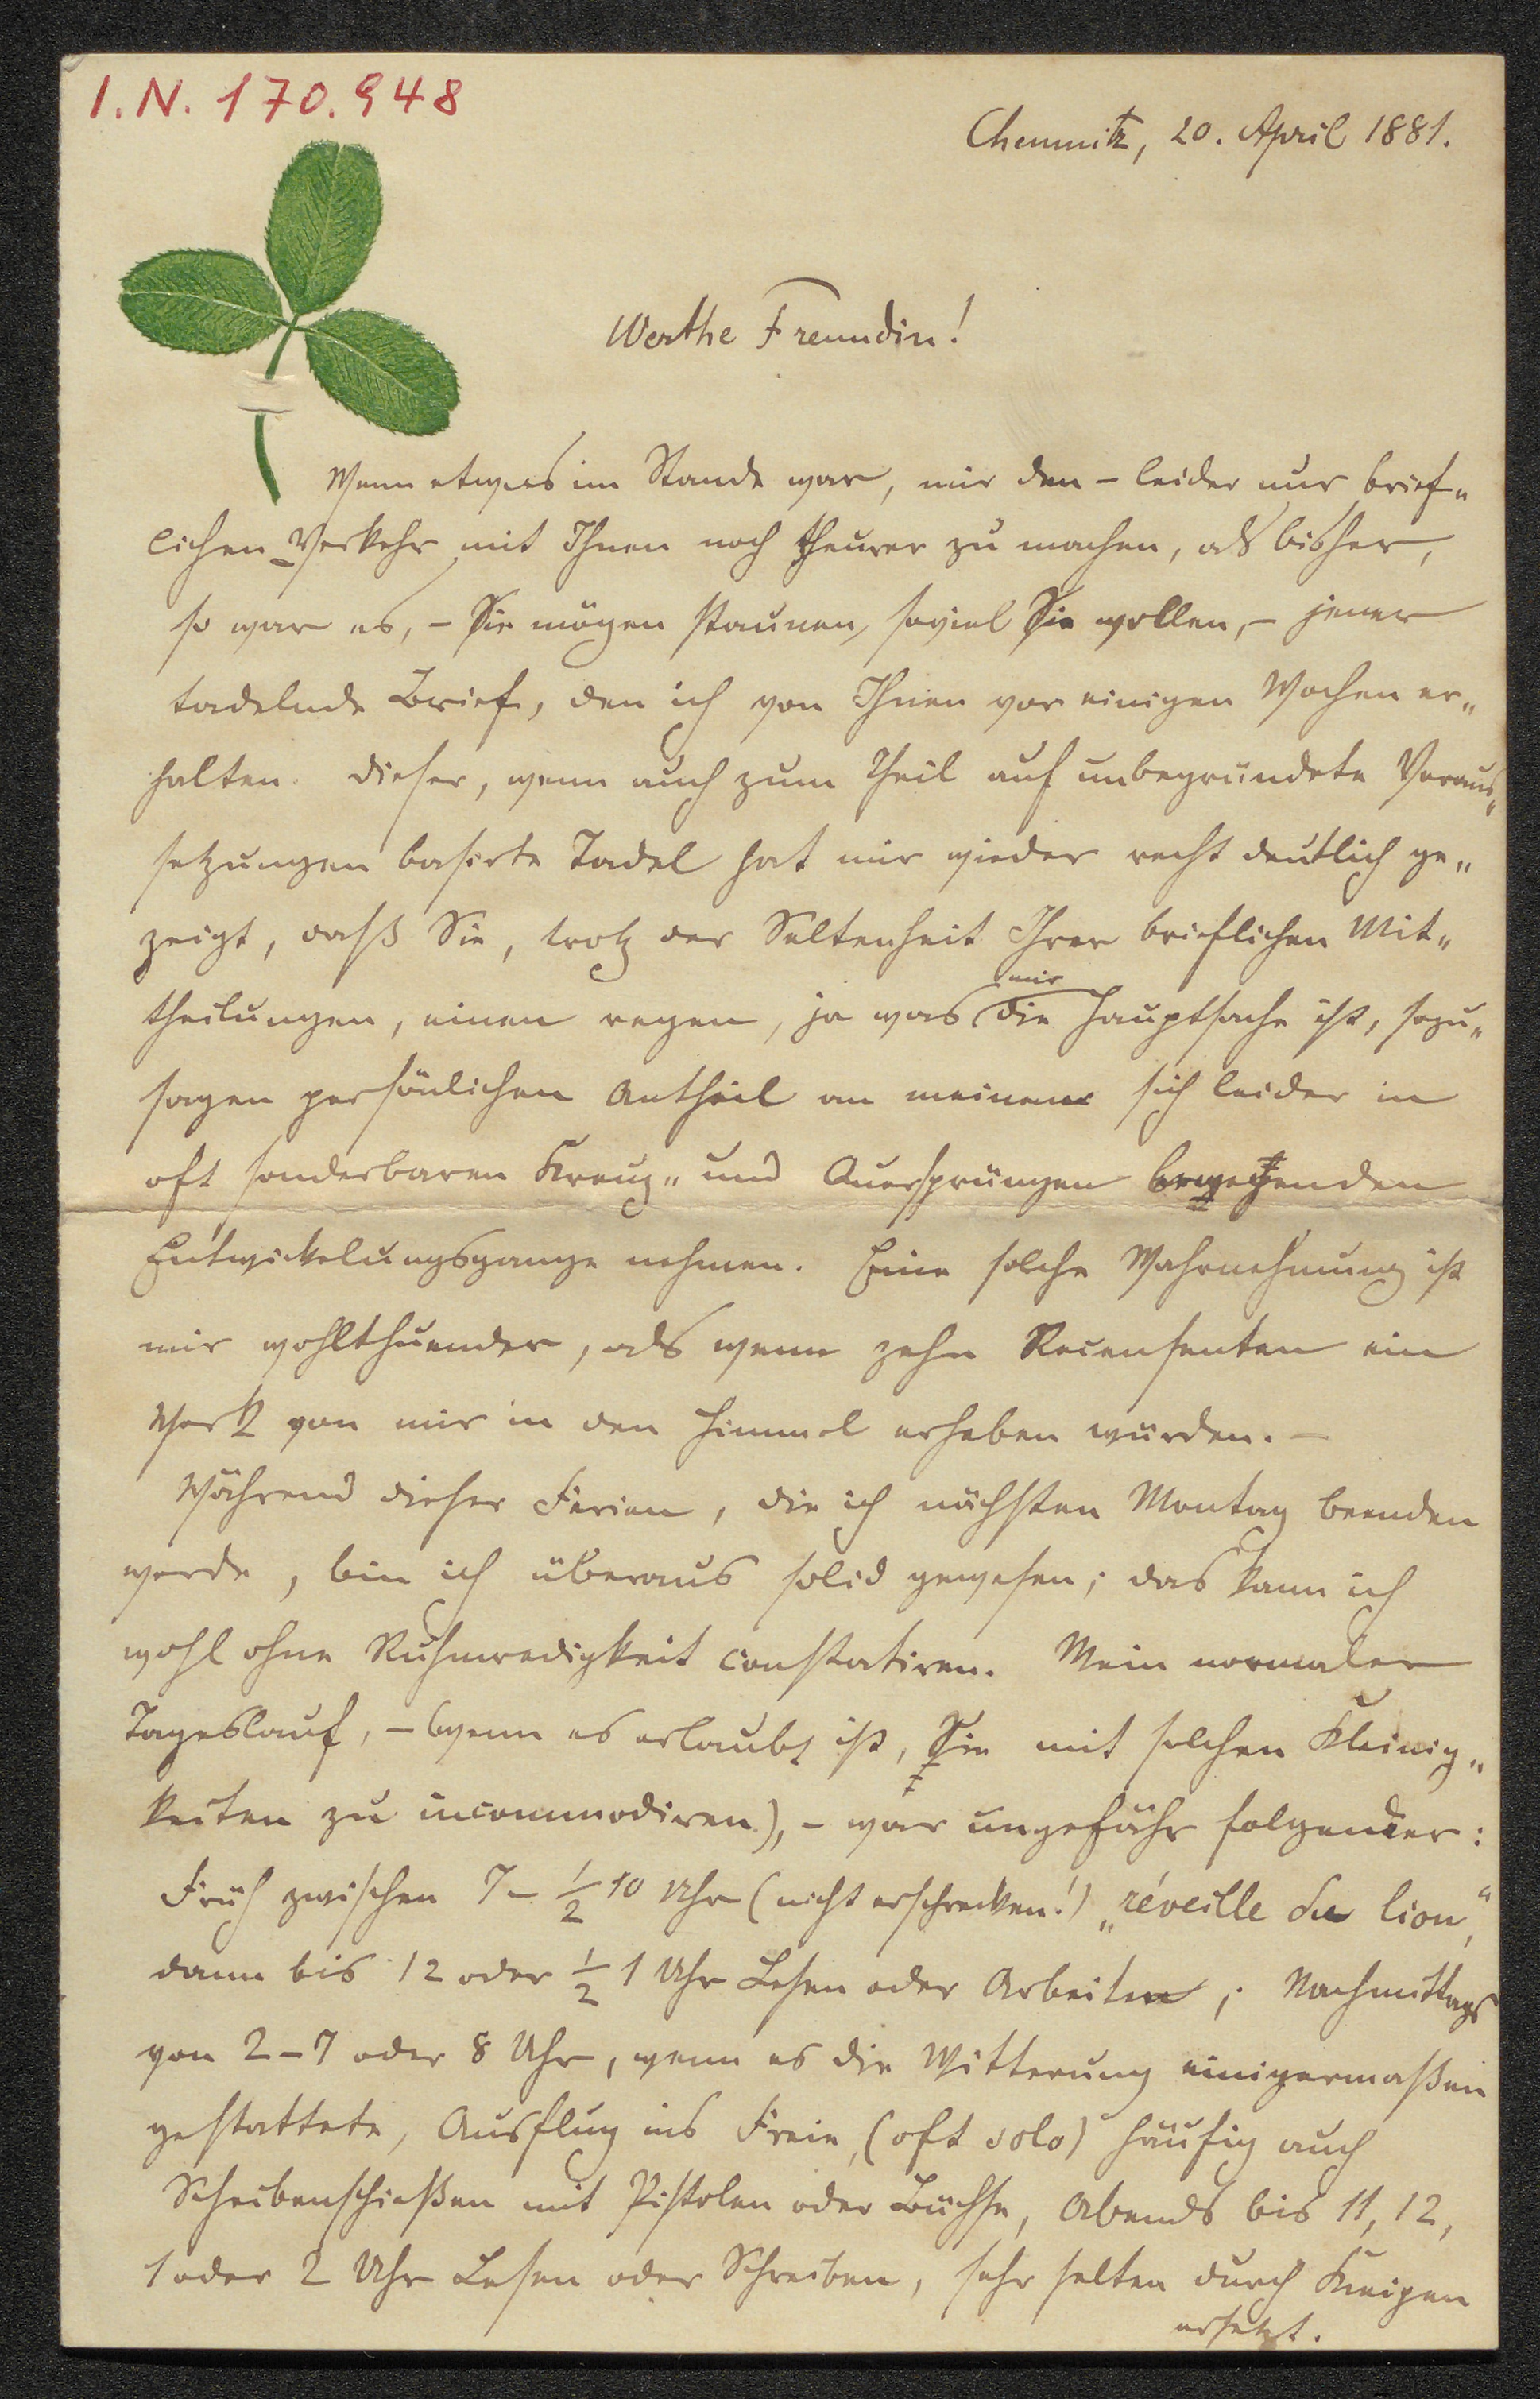 I.N. 170.948
Chemnitz, 20. April 1881.
Werthe Freundin!
Wenn etwas im Stande war, mir den – leider nur brief„
lichen – Verkehr mit Ihnen noch theurer zu machen, als bisher,
so war es, – Sie mögen staunen, soviel Sie wollen, – jener
tadelnde Brief, den ich von Ihnen vor einigen Wochen er„
halten. Dieser, wenn auch zum Theil auf unbegründete Voraus„
setzungen basirte Tadel hat mir wieder recht deutlich ge„
zeigt, daß Sie, trotz der Seltenheit Ihrer brieflichen Mit„
theilungen, einen regen, ja was mir die Hauptsache ist, sozu„
sagen persönlichen Antheil an meinem sich leider in
oft sonderbaren Kreuz„ und Quersprüngen bewegenden
Entwickelungsgange nehmen. Eine solche Wahrnehmung ist
mir wohlthuender, als wenn zehn Recensenten ein
Werk von mir in den Himmel erheben würden. –
Während dieser Ferien, die ich nächsten Montag beenden
werde, bin ich überaus solid gewesen; das kann ich
wohl ohne Ruhmredigkeit constatiren. Mein normaler
Tageslauf, – (wenn es erlaubt ist, Sie mit solchen Kleinig„
keiten zu incommodiren), – war ungefähr folgender:
Früh zwischen 7 – ½ 10 Uhr (nicht erschrecken!) „réveille du lion“,
dann bis 12 oder ½ 1 Uhr Lesen oder Arbeiten; Nachmittags
von 2 – 7 oder 8 Uhr, wenn es die Witterung einigermaßen
gestattete, Ausflug ins Freie, (oft solo) häufig auch
Scheibenschießen mit Pistolen oder Büchse, Abends bis 11, 12,
1 oder 2 Uhr Lesen oder Schreiben, sehr selten durch Kneipen
ersetzt.